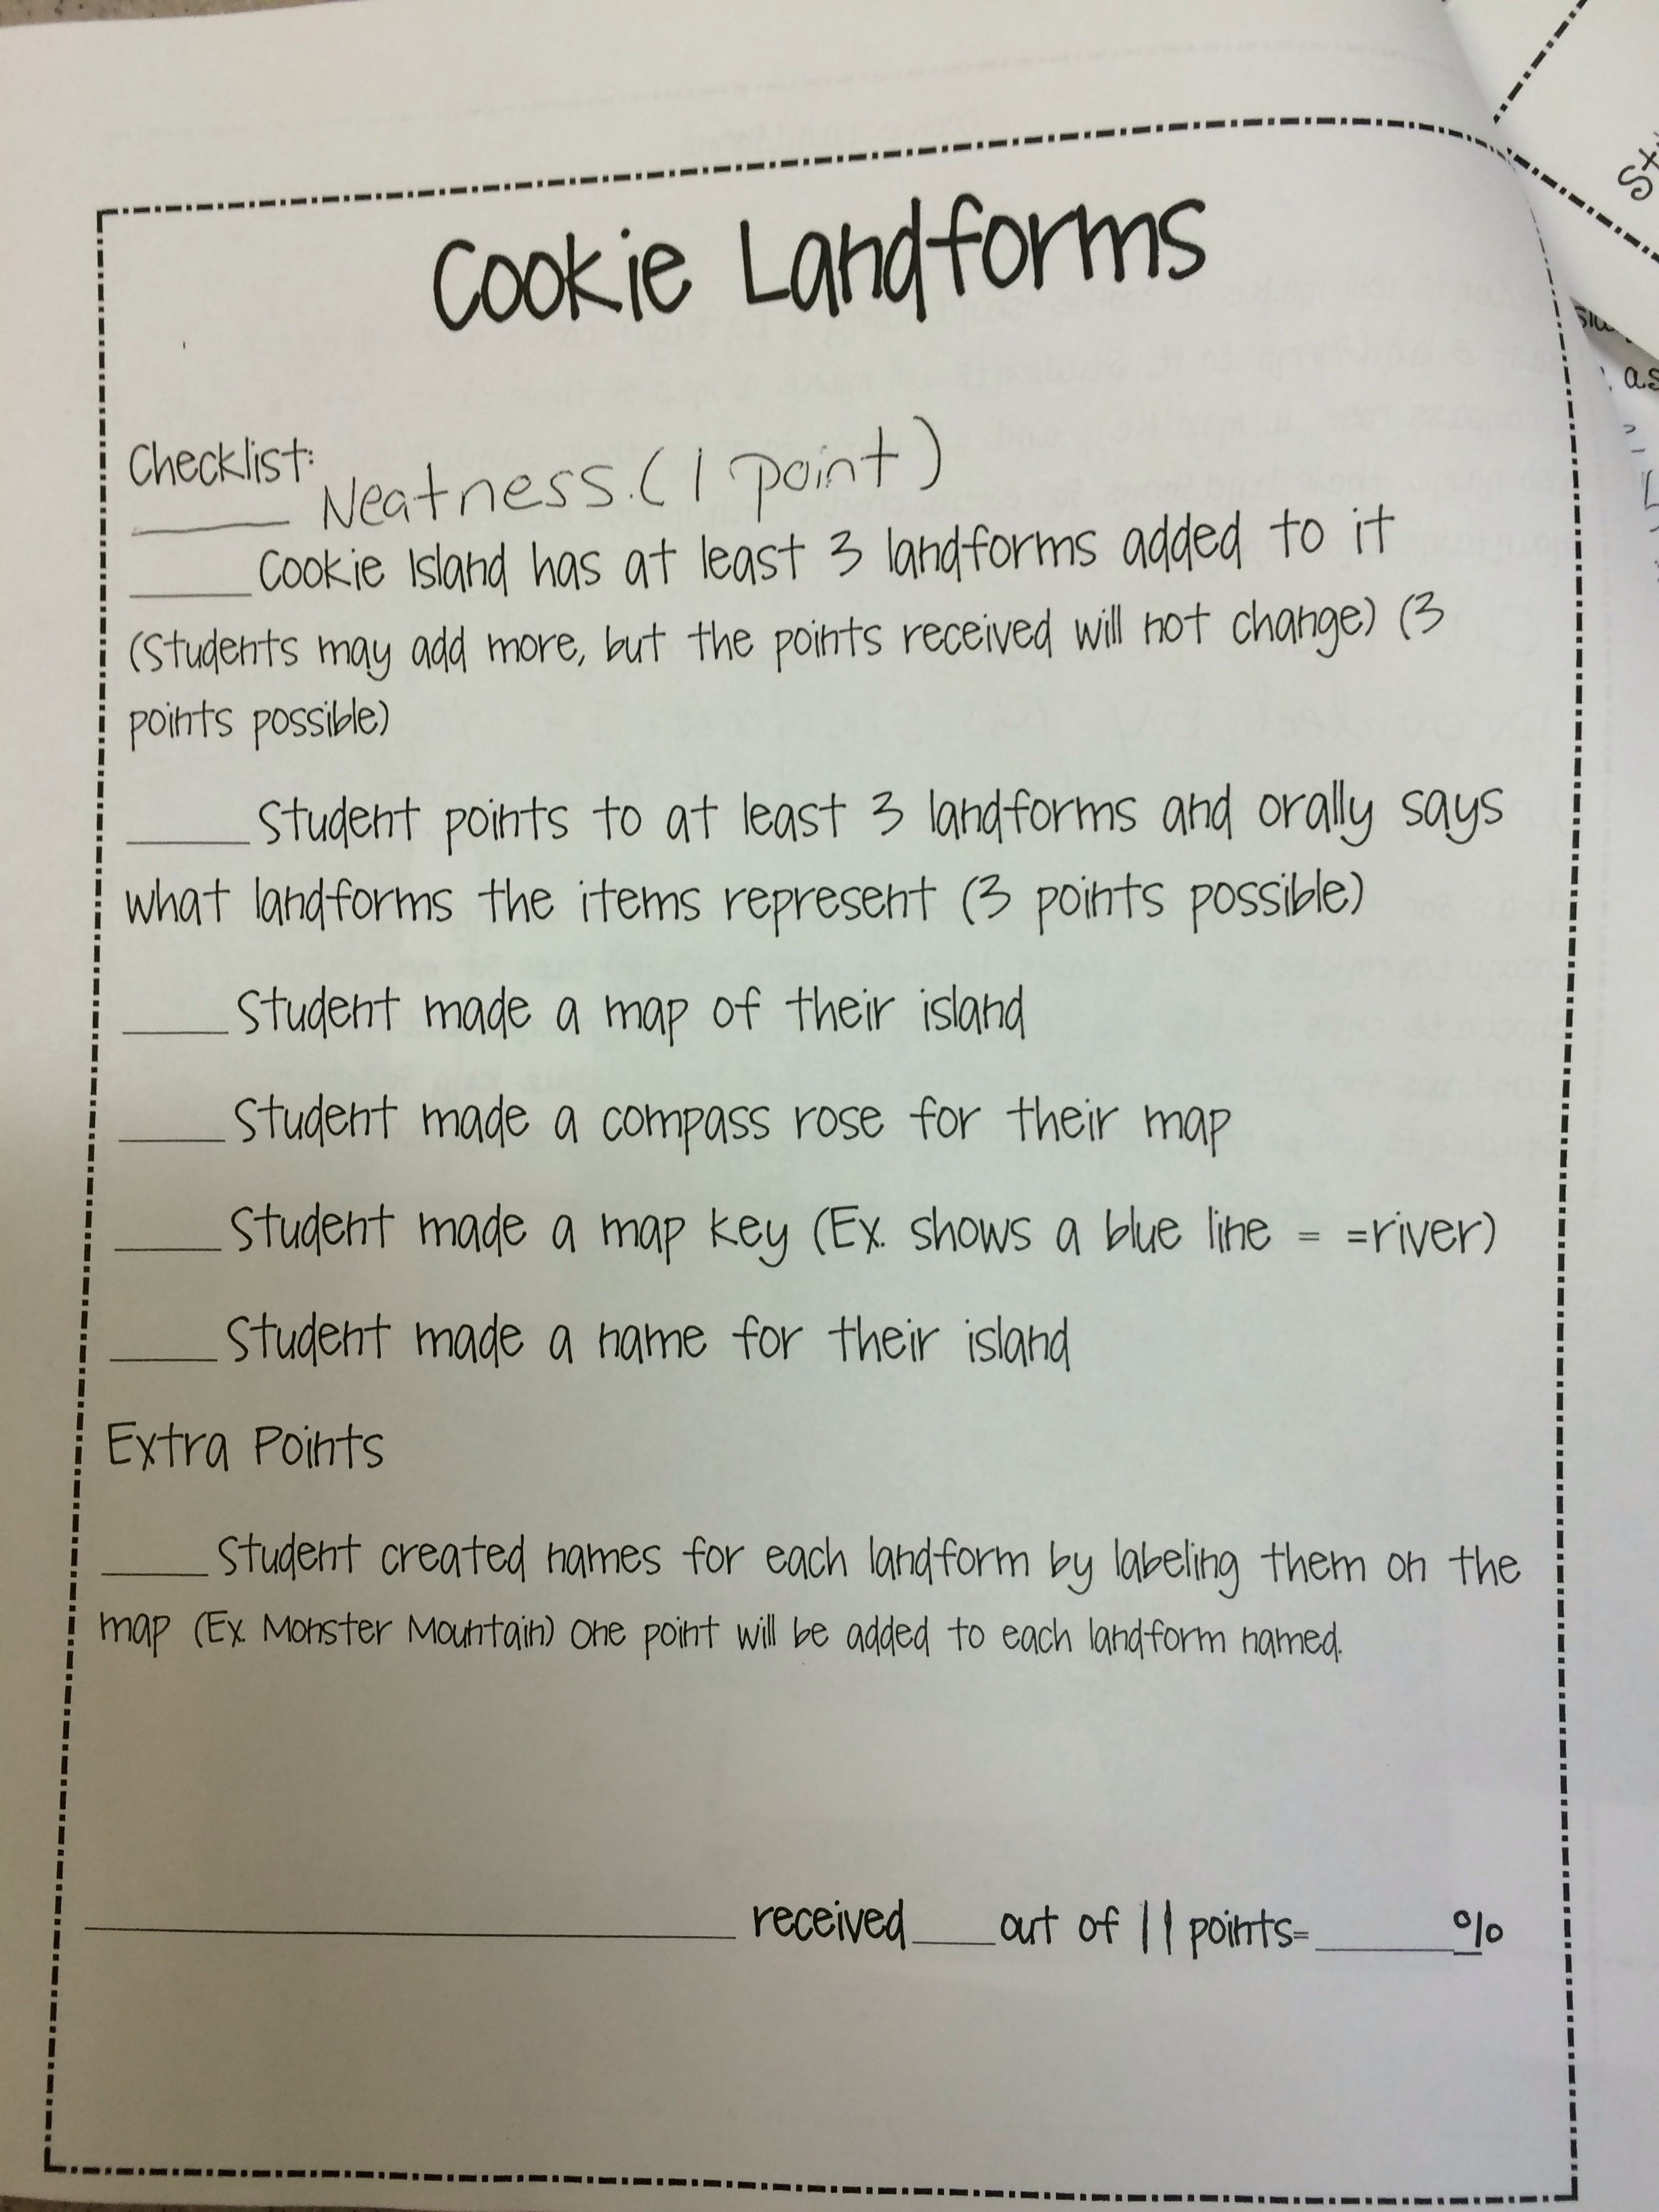 Cookie Landforms
Checklist:
_____ Neatness. (1 point)
_____Cookie Island has at least 3 landforms added to it
(Students may add more, but the points received will not change) (3
points possible)
_____Student points to at least 3 landforms and orally says
what landforms the items represent (3 points possible)
_____Student made a map of their island
_____Student made a compass rose for their map
_____Student made a map key (Ex. shows a blue line = =river)
_____Student made a name for their island
Extra Points
_____Student created names for each landform by labeling them on the
map (Ex. Monster Mountain) One point will be added to each landform named.
_____ received____out of 11 points=______%
as